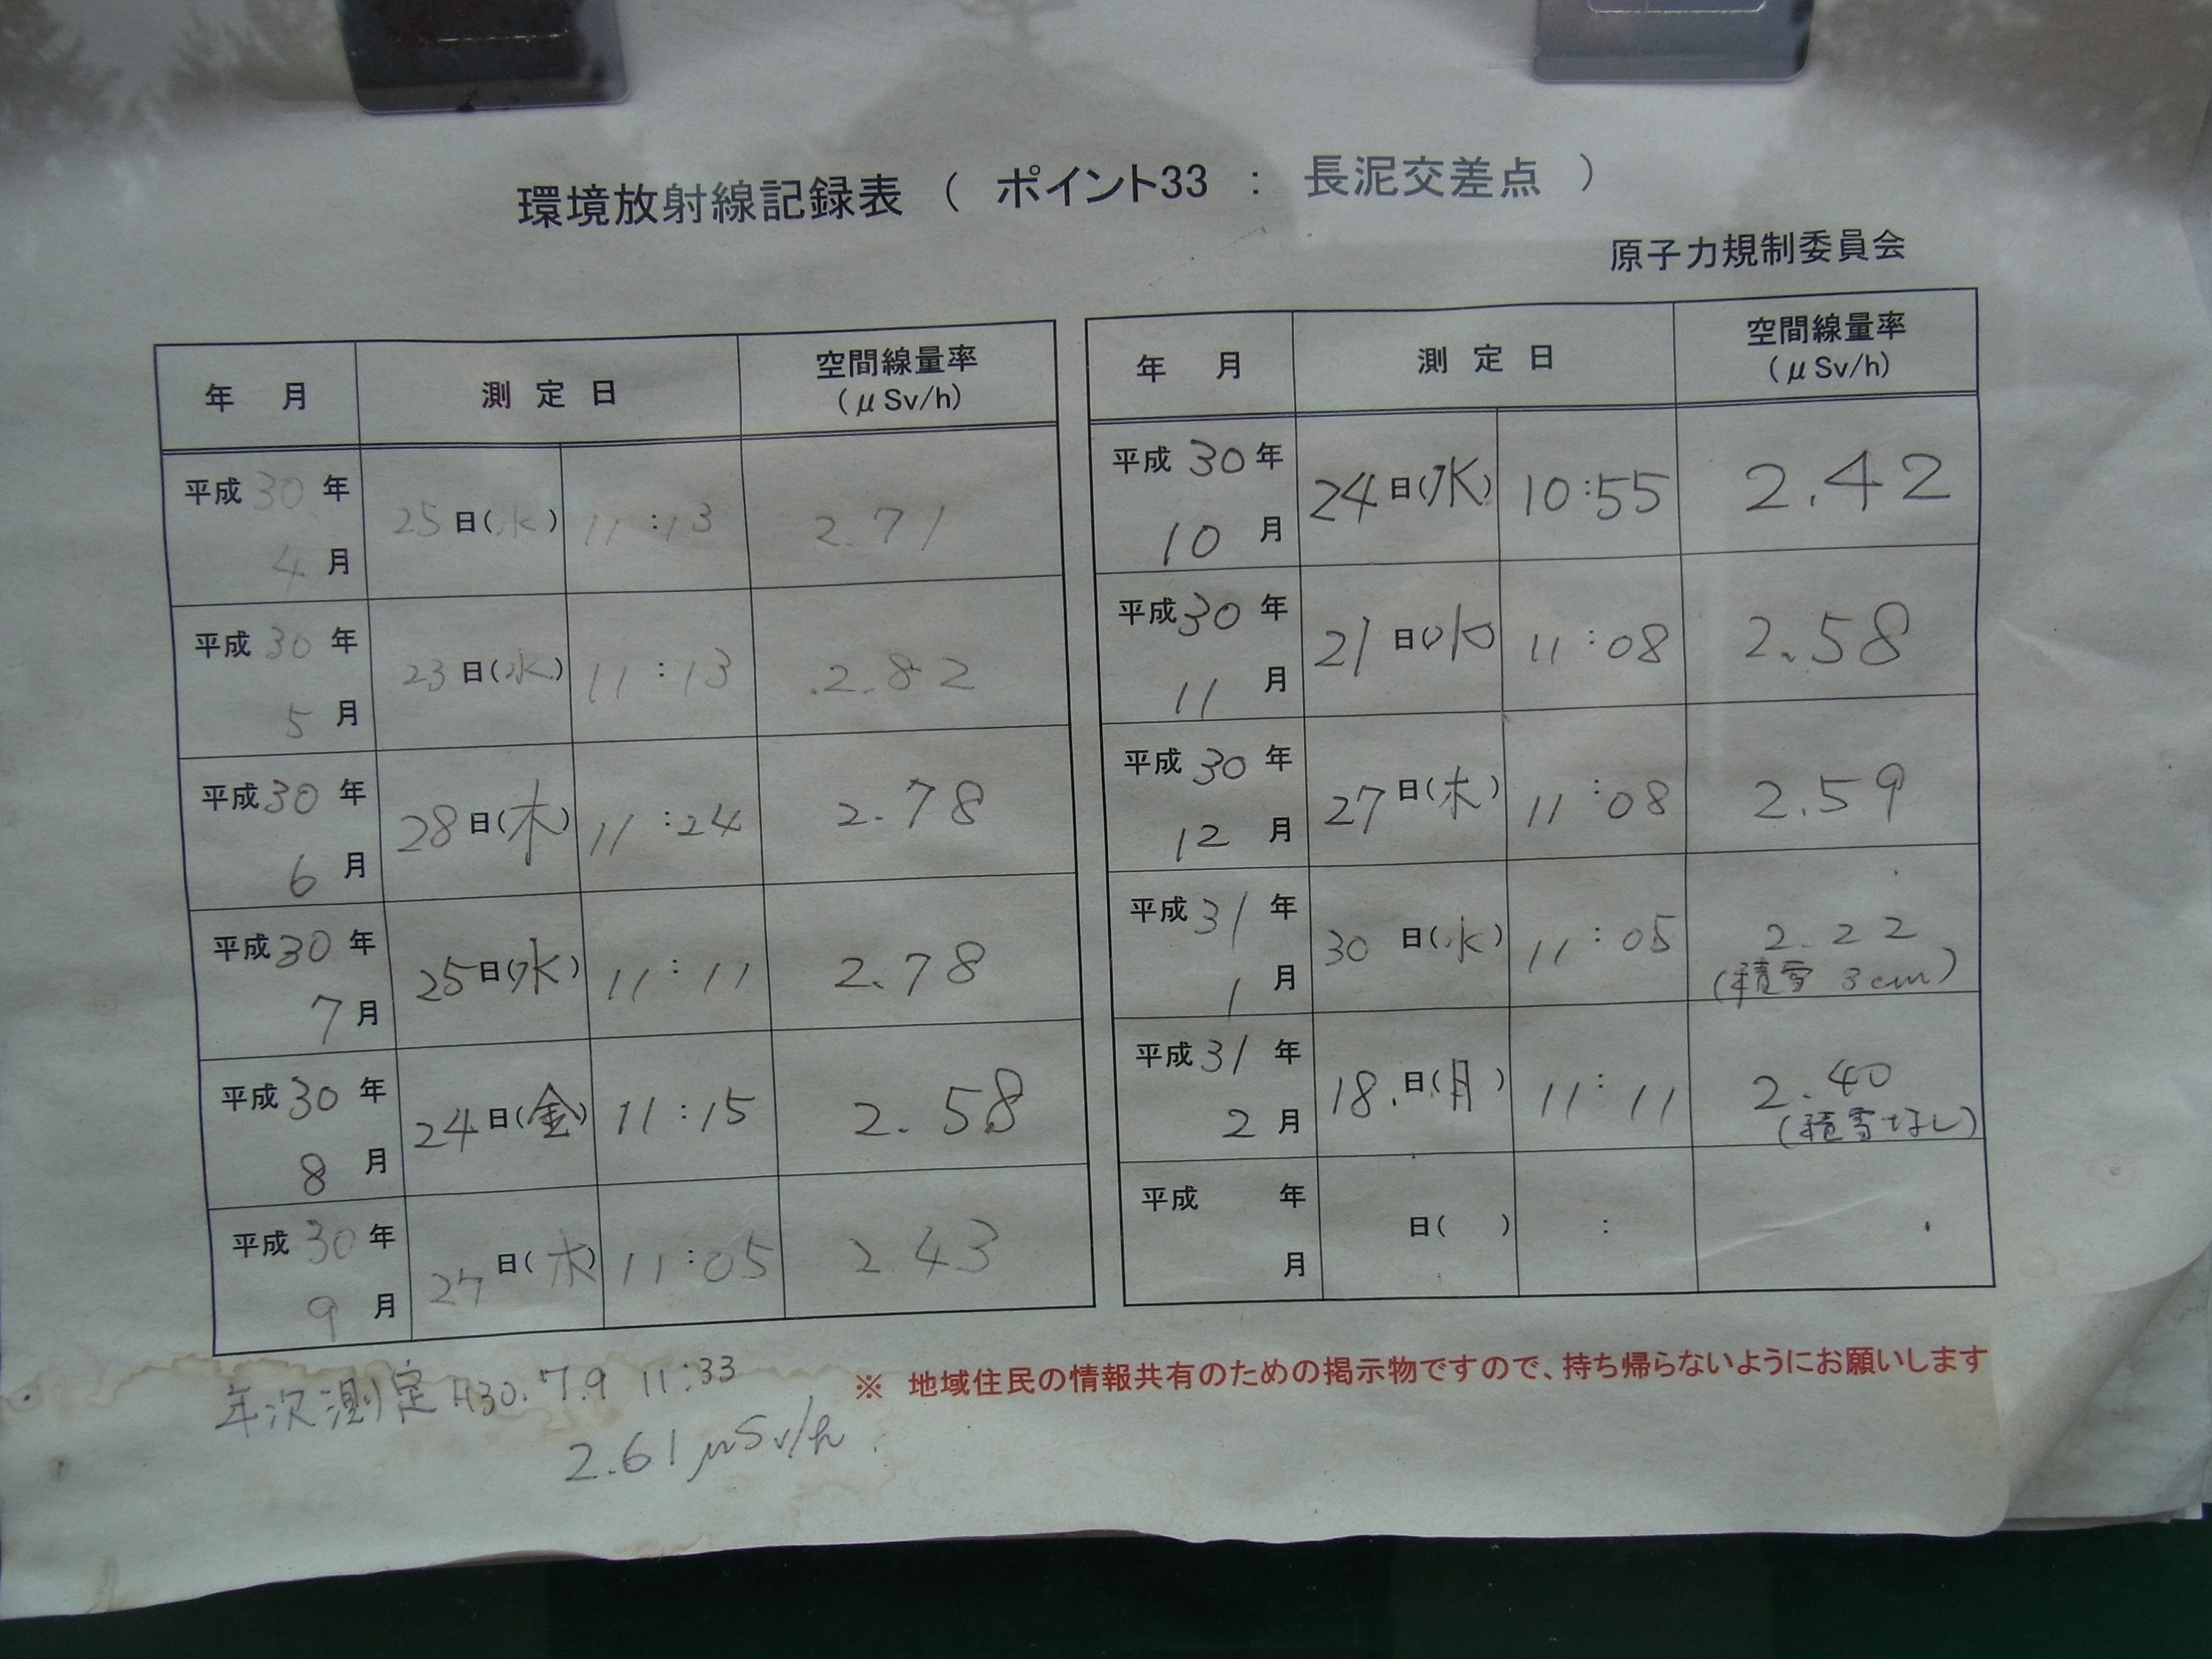 環境放射線記録表 ( ポイント33 : 長泥交差点 )
原子力規制委員会
年 月 測定日 空間線量率 (μSv/h)
平成30年 4月 25日(水) 11:13 2.71
平成30年 5月 23日(水) 11:13 2.82
平成30年 6月 28日(木) 11:24 2.78
平成30年 7月 25日(水) 11:11 2.78
平成30年 8月 24日(金) 11:15 2.58
平成30年 9月 27日(木) 11:05 2.43
年 月 測定日 空間線量率 (μSv/h)
平成30年 10月 24日(水) 10:55 2.42
平成30年 11月 21日(水) 11:08 2.58
平成30年 12月 27日(木) 11:08 2.59
平成31年 1月 30日(水) 11:05 2.22 (積雪 3cm)
平成31年 2月 18日(月) 11:11 2.40 (積雪なし)
平成 年 月 日( ) :
※ 地域住民の情報共有のための掲示物ですので、持ち帰らないようにお願いします
年次測定 H30.7.9 11:33
2.61μSv/h